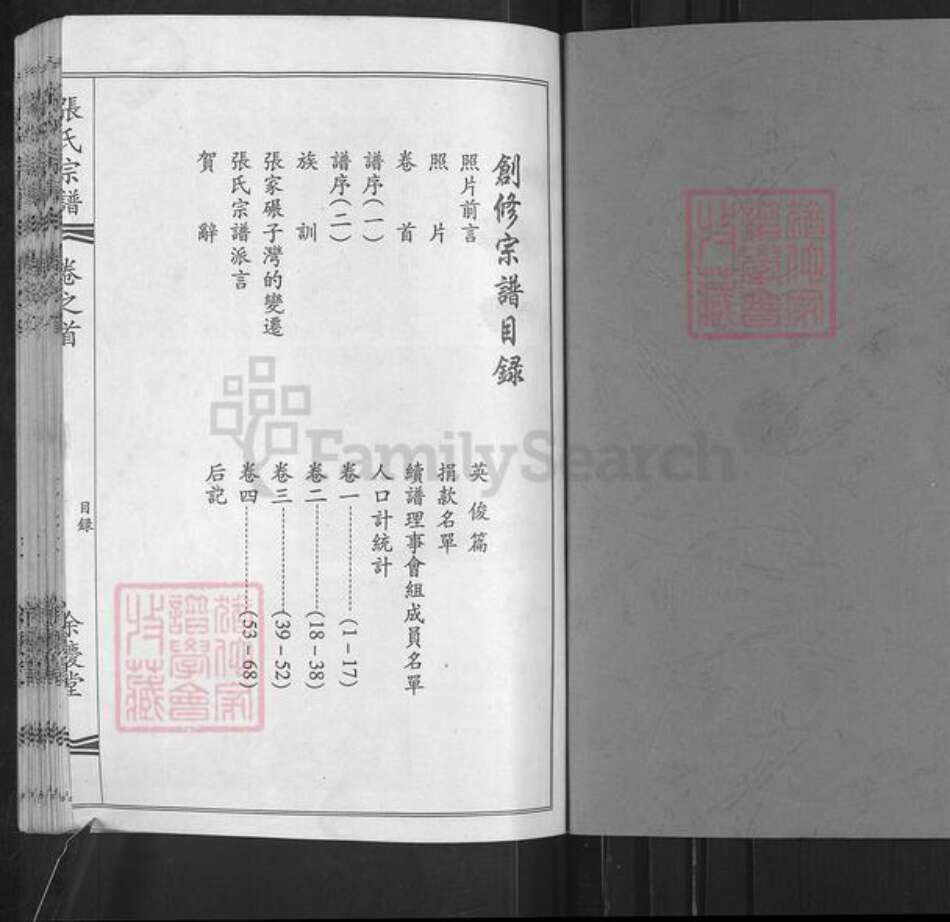 創修宗譜目録
照片前言
照片
卷首
譜序(一)
譜序(二)
族訓
張家碾子灣的變遷
張氏宗譜派言
賀辭
英俊篇
捐款名單
續譜理事會組成員名單
人口計統計
卷一(1-17)
卷二(18-38)
卷三(39-52)
卷四(53-68)
后記
張氏宗譜
卷之首
目録
余慶堂
FamilySearch